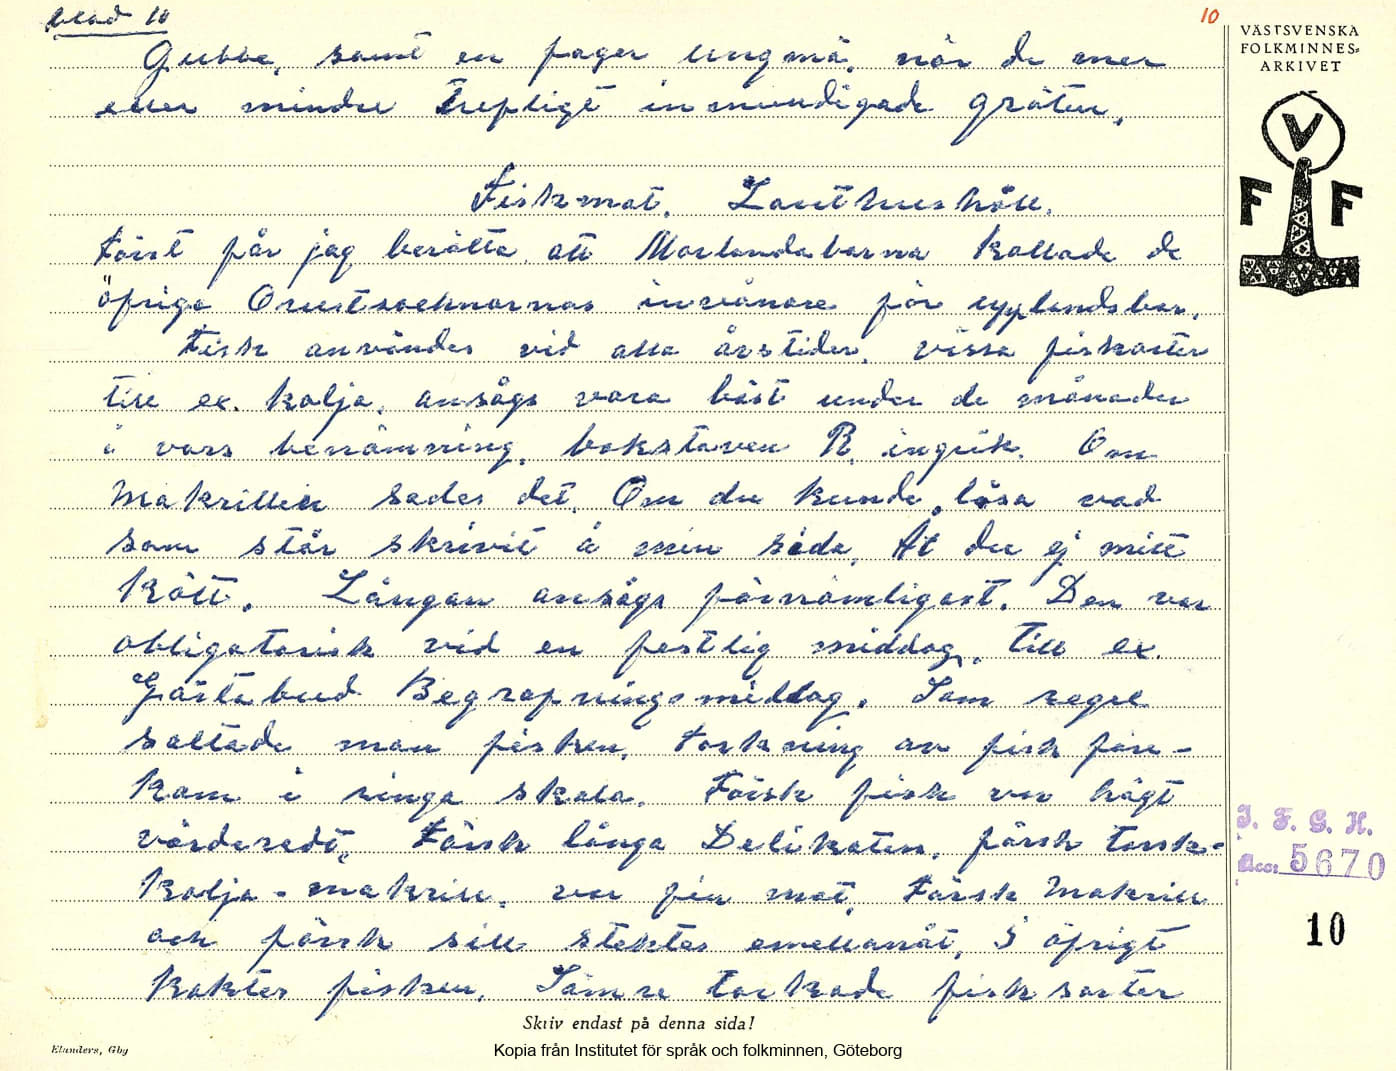 blad 10
10
Gubbe, samt en fager ungmö, när de mer
eller mindre trefligt inmundigade gröten.
Fiskmat. Lanthushåll.
Först får jag berätta att Morlandabarna kallade de
öfriga Orustsocknarnas invånare för upplandsbar.
Fisk användes vid alla årstider, vissa fiskarter
till ex. kolja, ansågs vara bäst under de månader
i vars benämning, bokstaven R, ingick. Om
Makrillen sades det, Om du kunde läsa vad
som står skrivit å min sida, Åt du ej mitt
kött. Långan ansågs förnämligast. Den var
obligatorisk vid en festlig middag, till ex.
Gästabud Begrafningsmiddag. Som regel
saltade man fisken, torkning av fisk före-
kom i ringa skala. Färsk fisk var högt
värderadt, Färsk långa Delikaten, färsk torsk-
kolja-makrill, var fin mat, Färsk Makrill
och färsk sill stektes emellanåt, I öfrigt
koktes fisken. Sämre torkade fisksorter
VÄSTSVENSKA
FOLKMINNES-
ARKIVET
V
F F
I. F. G. H.
Acc: 5670
10
Skriv endast på denna sida!
Elanders, Gbg
Kopia från Institutet för språk och folkminnen, Göteborg